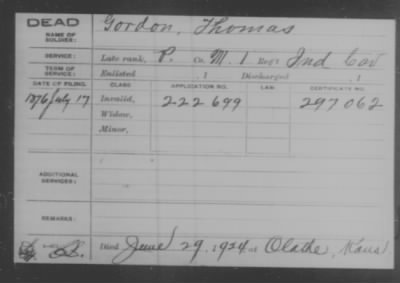 DEAD
NAME OF SOLDIER:
Gordon, Thomas
SERVICE:
Late rank, P. Co. M. 1 Reg't Ind Cav
TERM OF SERVICE:
Enlisted , 1 Discharged , 1
DATE OF FILING. CLASS. APPLICATION NO. LAW. CERTIFICATE NO.
1876 July 17 Invalid, 222699 297062
Widow,
Minor,
ADDITIONAL SERVICES:
REMARKS:
Died June 29, 1924 at Olathe, Kans